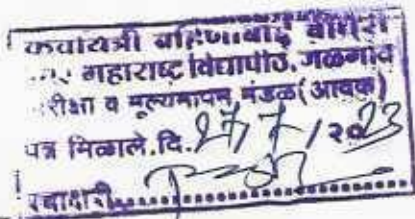 कवयित्री बहिणाबाई चौधरी
महाराष्ट्र विद्यापीठ, जळगांव
परीक्षा व मूल्यमापन मंडळ (आवक)
पत्र मिळाले.दि. 27/7/2023
स्वाक्षरी